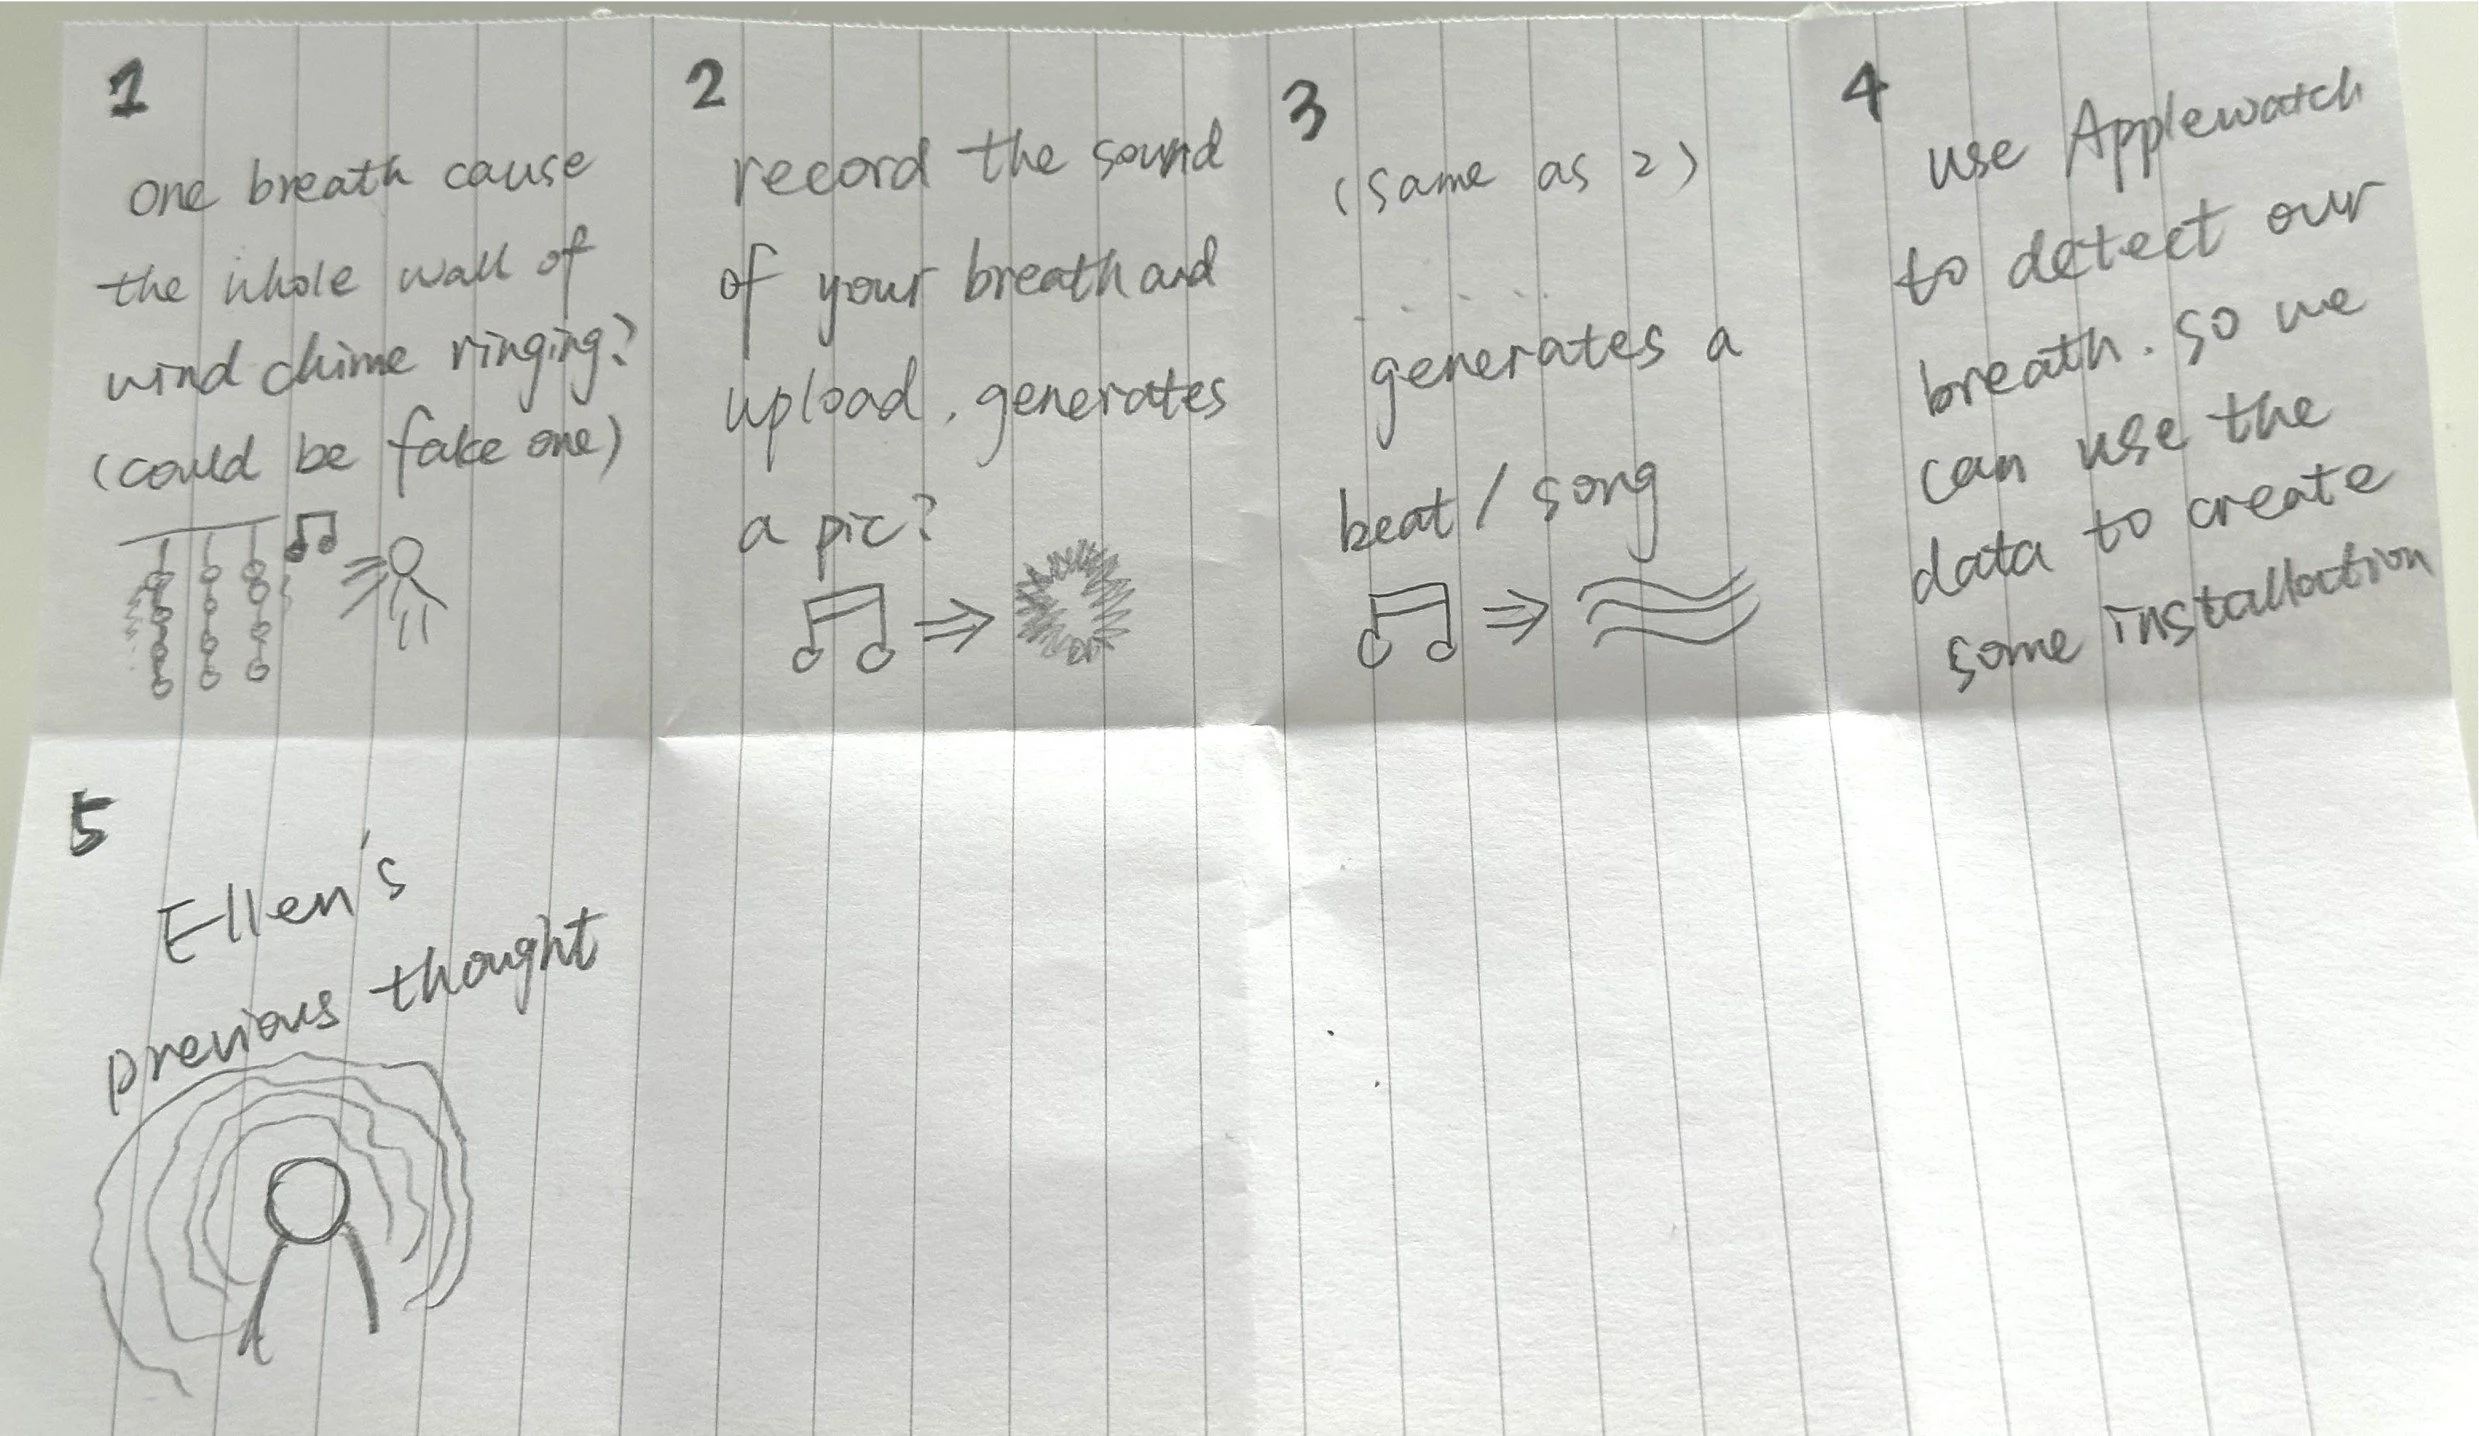 1
one breath cause
the whole wall of
wind chime ringing?
(could be fake one)
2
record the sound
of your breath and
upload. generates
a pic?
3
(same as 2)
generates a
beat / song
4
use Applewatch
to detect our
breath. so we
can use the
data to create
some installation
5
Ellen's
previous thought